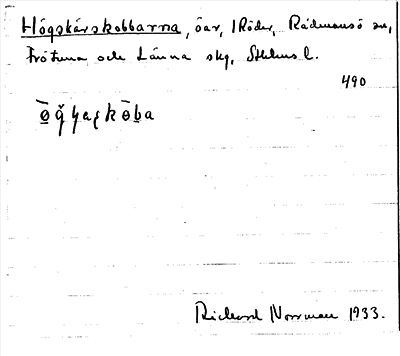 Högskärskobbarna, öar, i Röder, Rådmansö sn,
Frötuna och Länna skg, Sthlms l.
490
Rickard Norrman 1933.